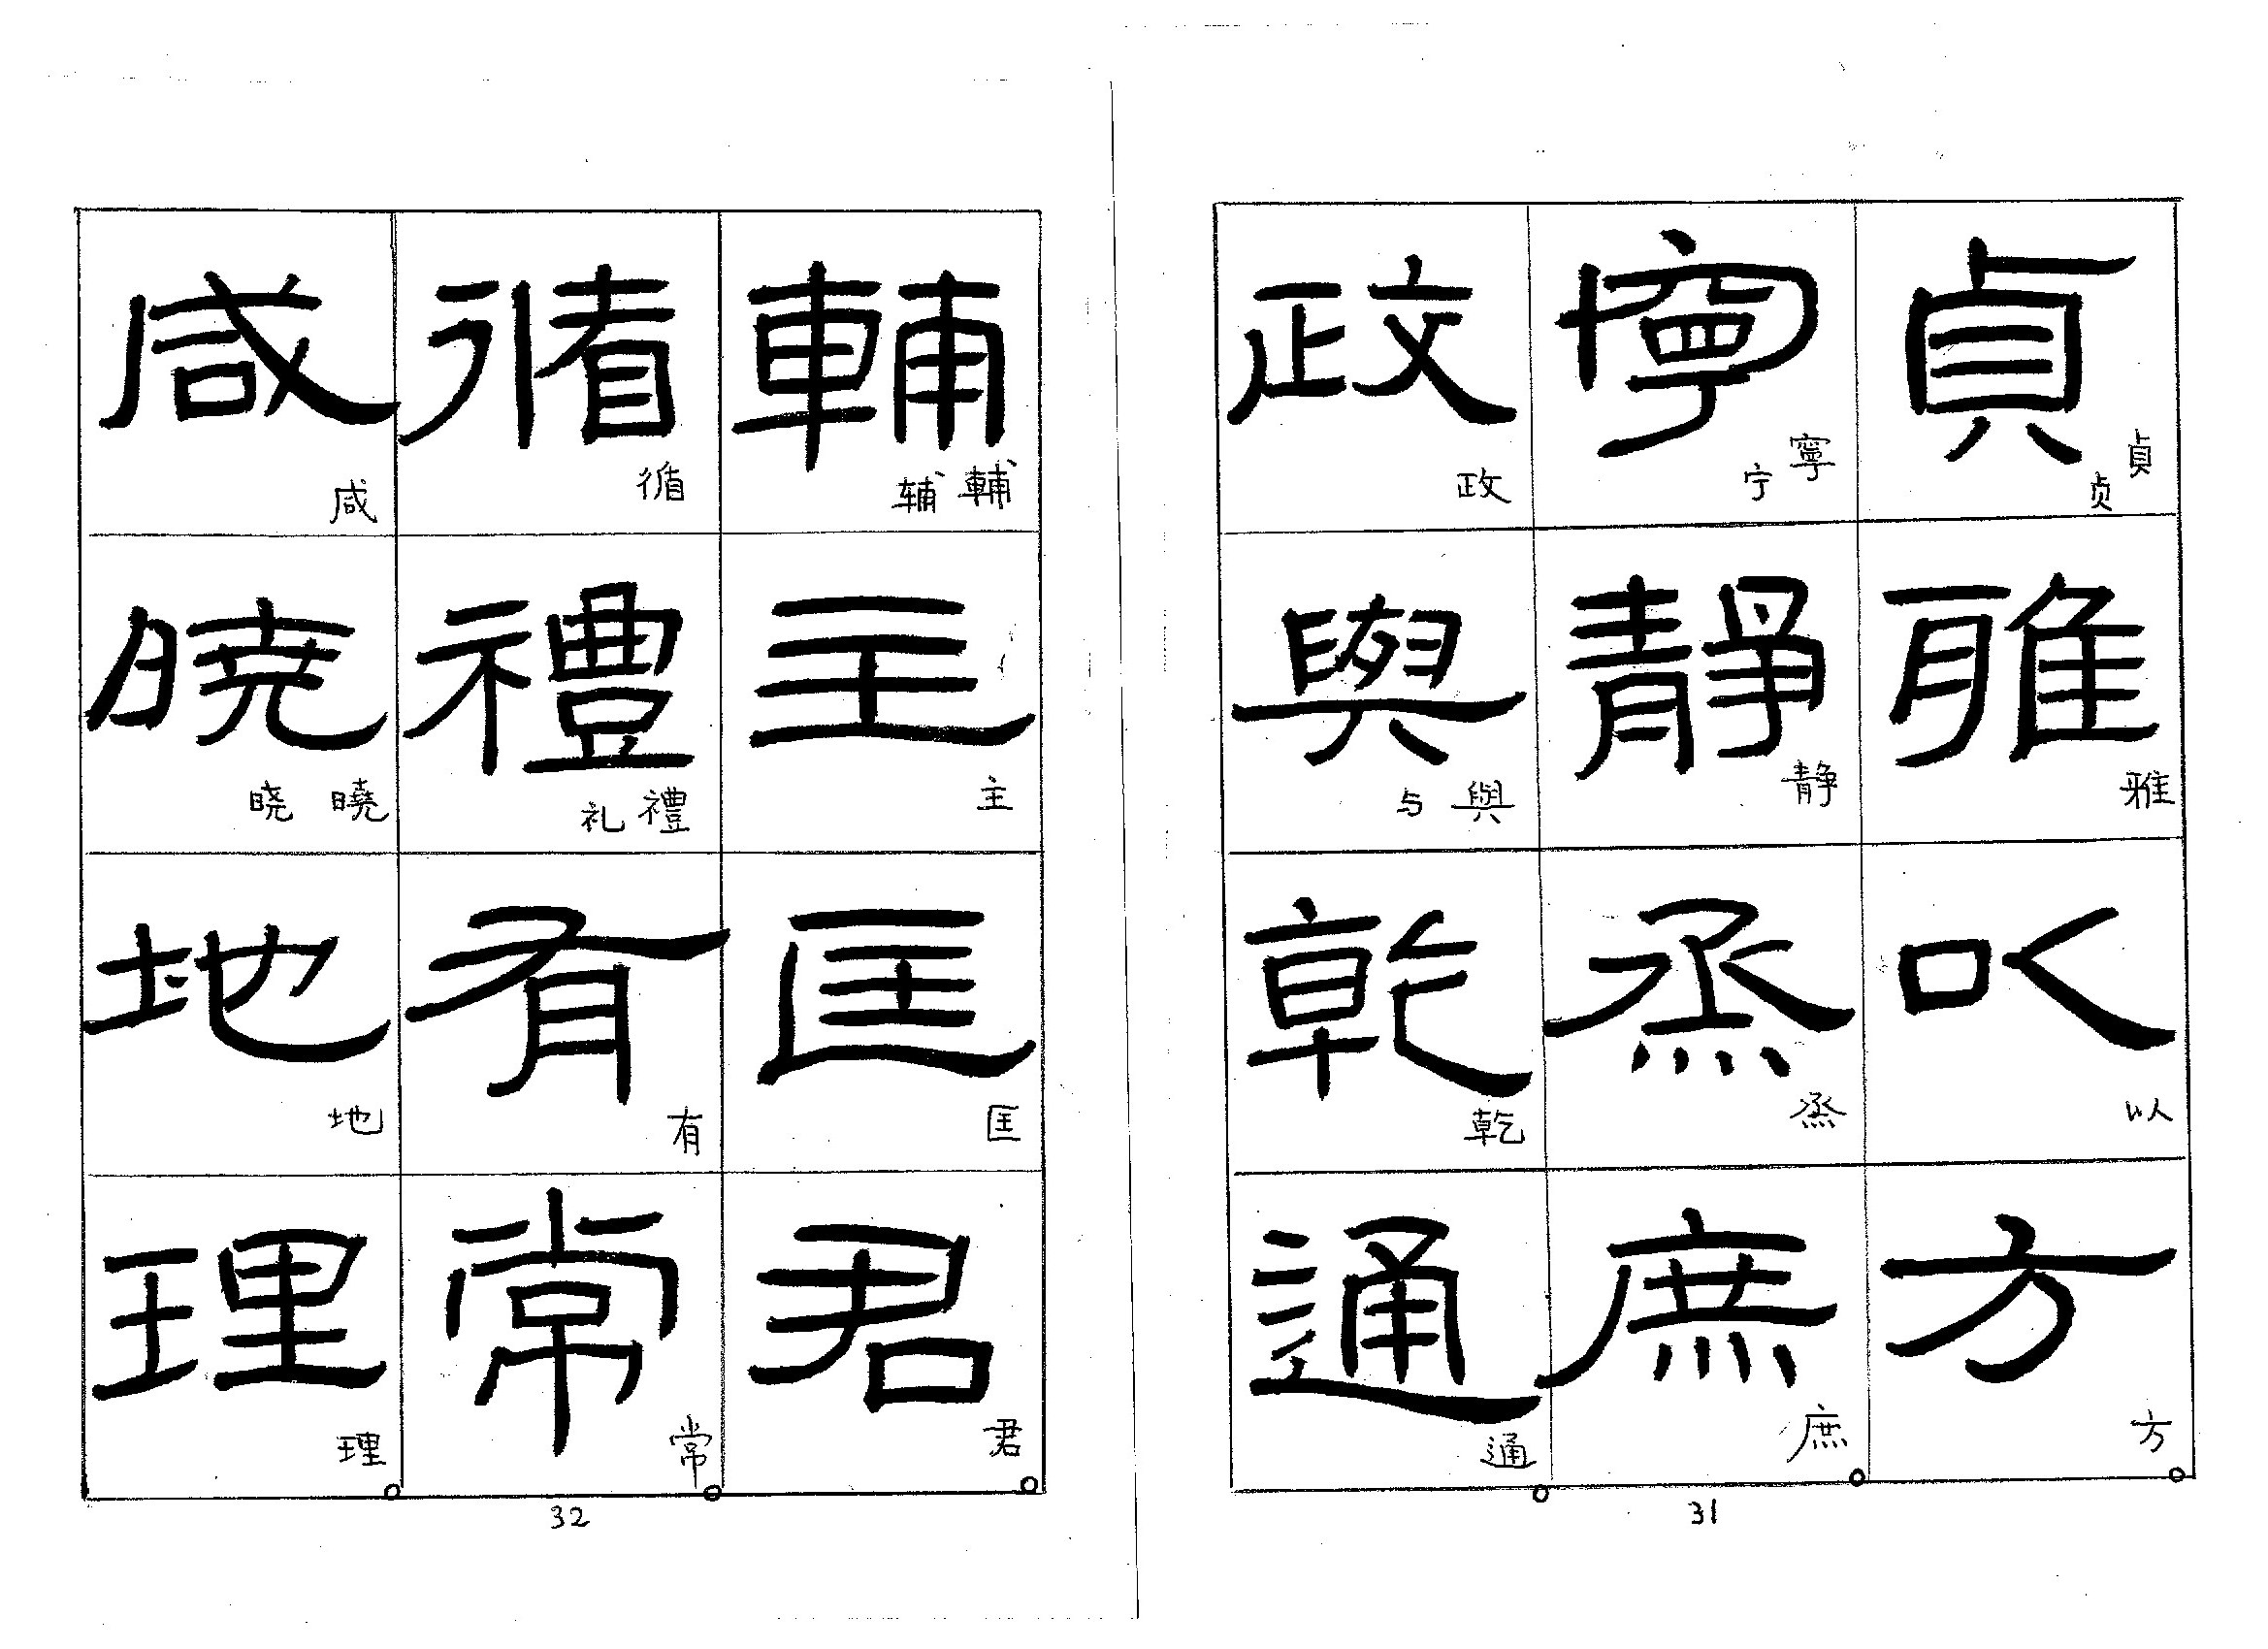 貞雅以方
貞 贞 雅 以 方
寧靜烝庶
寧 宁 静 烝 庶
政與乾通
政 與 与 乾 通
31
輔主匡君
輔 辅 主 匡 君
循禮有常
循 禮 礼 有 常
咸曉地理
咸 曉 晓 地 理
32